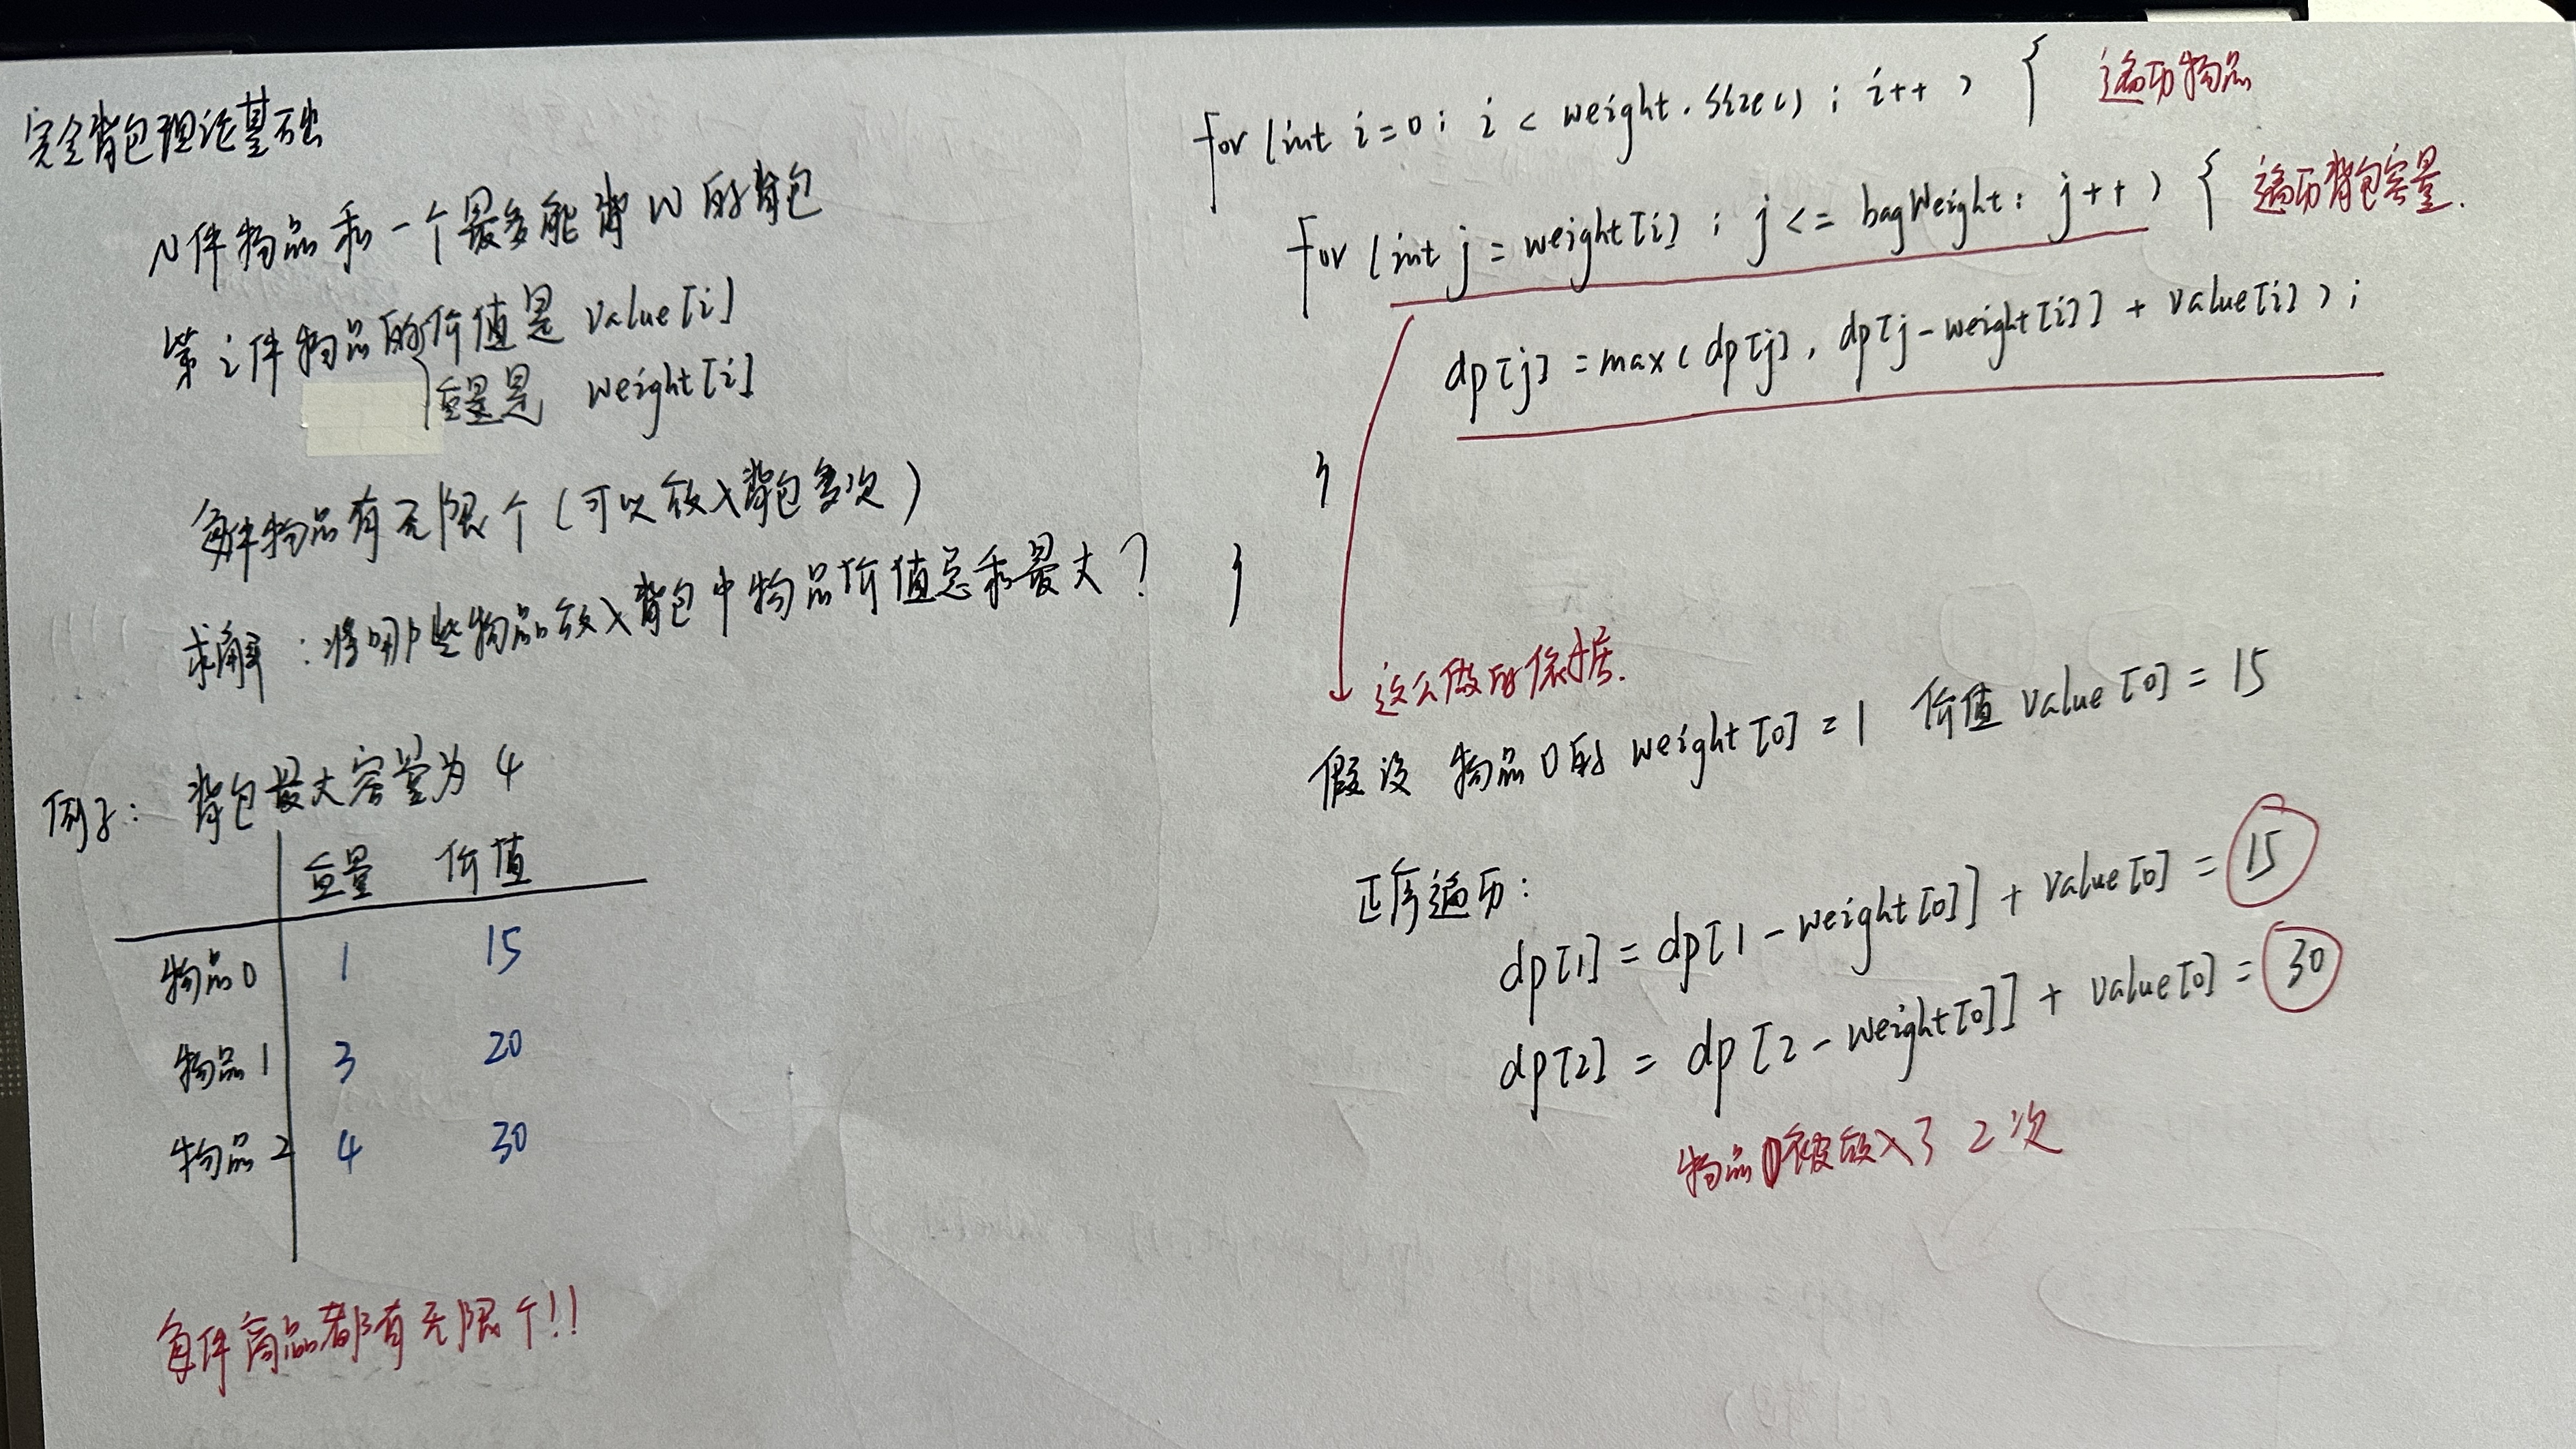 完全背包理论基础
N件物品和一个最多能背W的背包
第i件物品的价值是 value[i]
重量是 weight[i]
每件物品有无限个（可以放入背包多次）
求解：将哪些物品放入背包中物品价值总和最大？
例子： 背包最大容量为 4
重量 价值
物品0 1 15
物品1 3 20
物品2 4 30
每件商品都有无限个!!
for (int i=0; i < weight.size(); i++) { 遍历物品
for (int j = weight[i]; j <= bagWeight; j++) { 遍历背包容量.
dp[j] = max( dp[j], dp[j-weight[i]] + value[i]);
}
}
这么做的依据.
假设 物品0的 weight[0] = 1 价值 value[0] = 15
正序遍历：
dp[1] = dp[1 - weight[0]] + value[0] = 15
dp[2] = dp[2 - weight[0]] + value[0] = 30
物品0被放入了2次